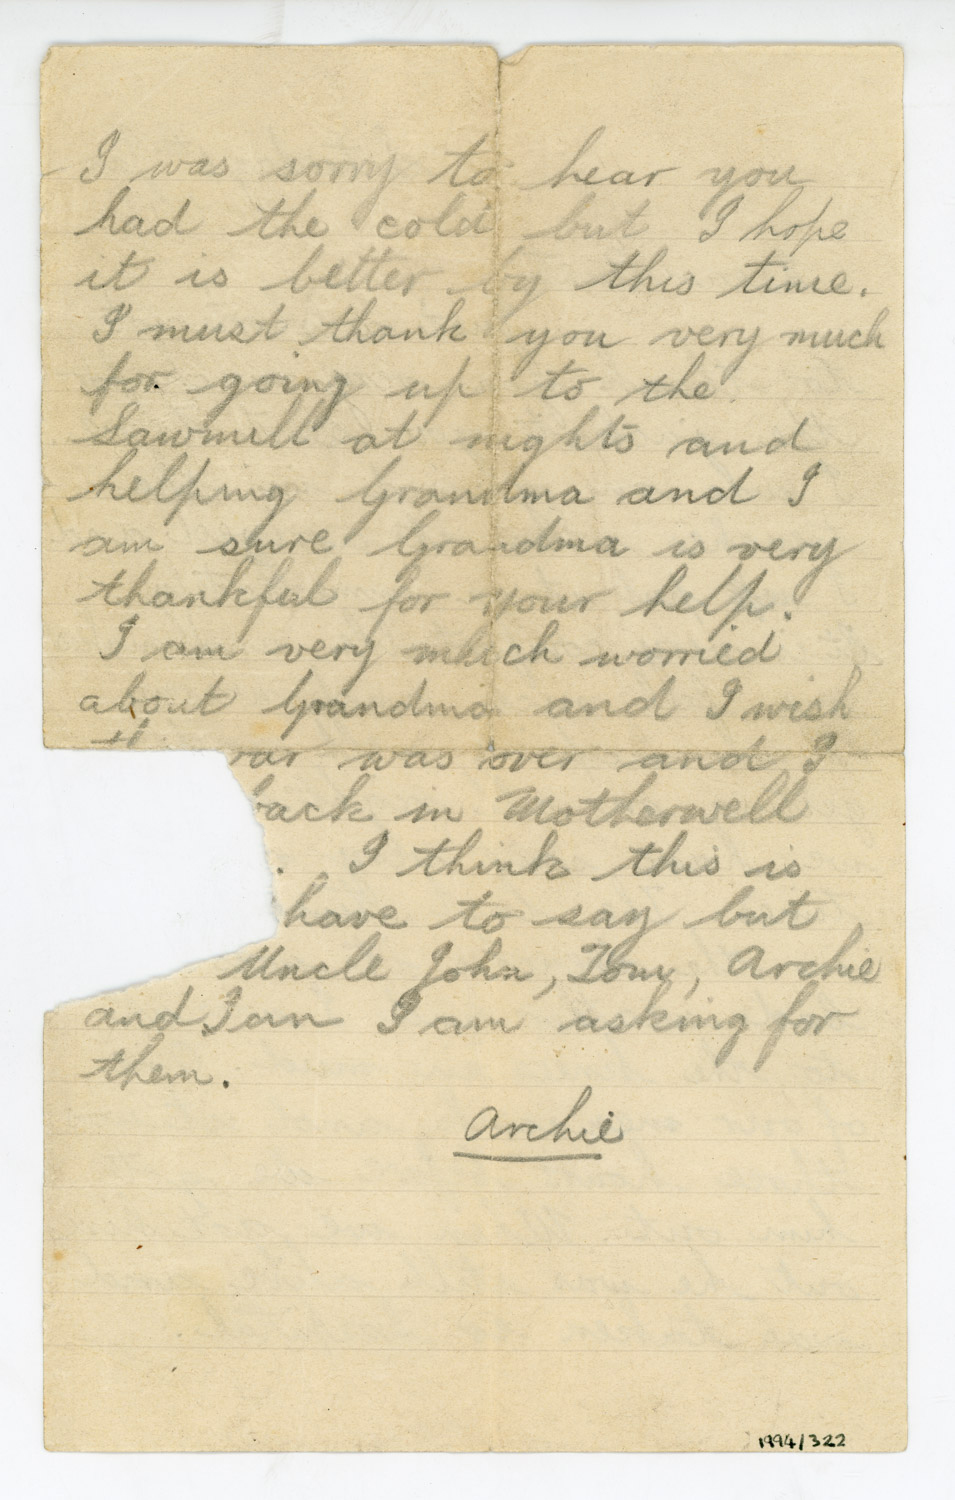 I was sorry to hear you
had the cold but I hope
it is better by this time.
I must thank you very much
for going up to the
Sawmill at nights and
helping Grandma and I
am sure Grandma is very
thankful for your help.
I am very much worried
about Grandma and I wish
was over and I
back in Motherwell
. I think this is
have to say but
Uncle John, Tom, Archie
and Ian I am asking for
them.
Archie
1994/322